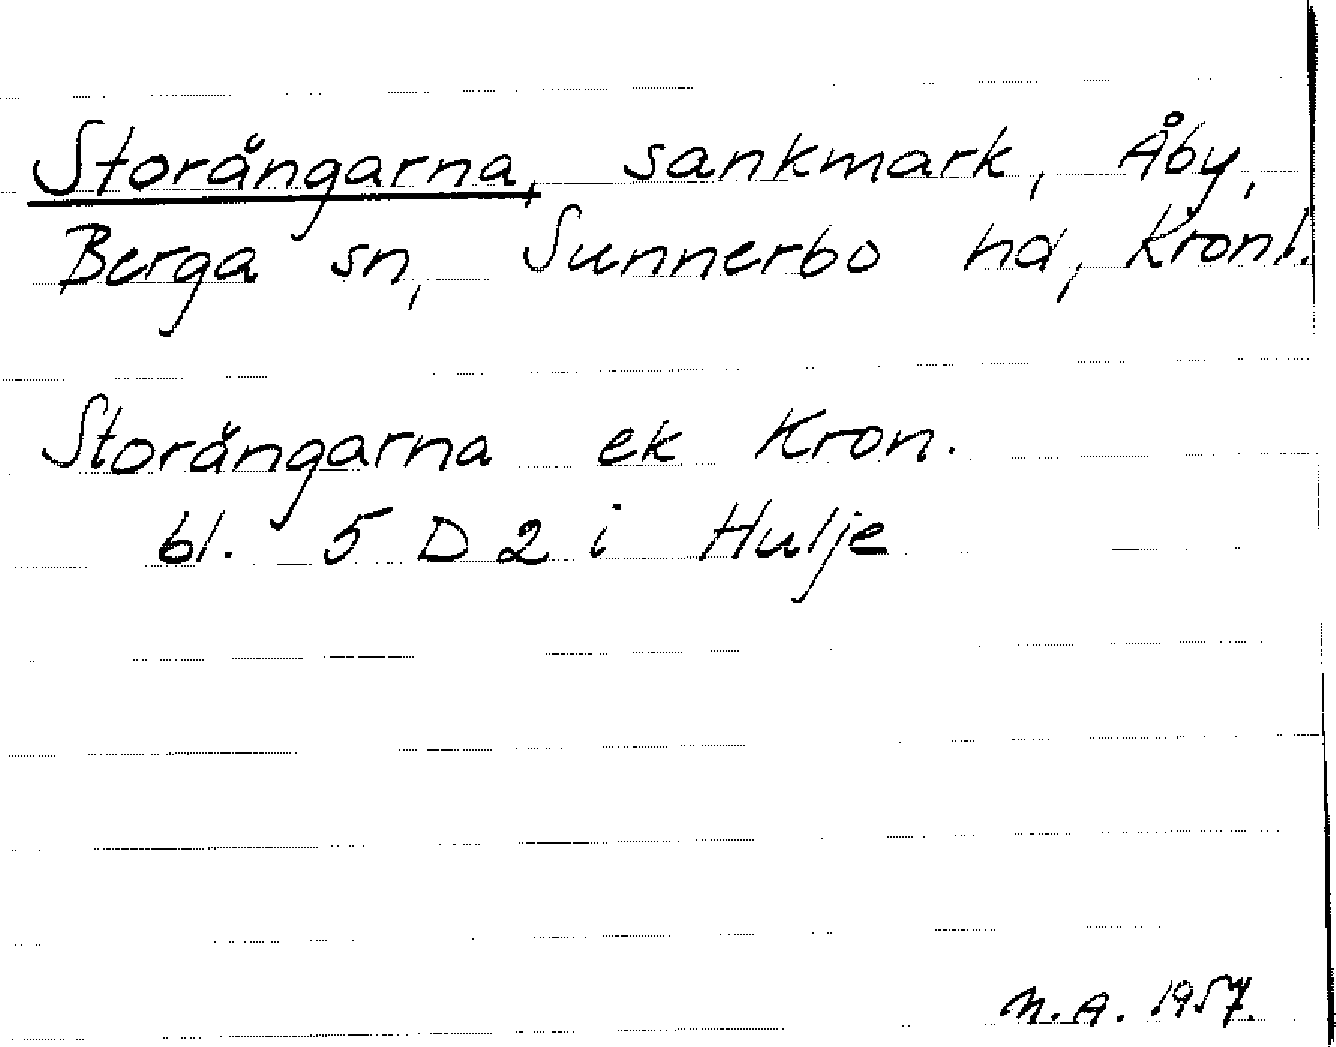 Storängarna, sankmark, Åby,
Berga sn, Sunnerbo hd, Kronl.
Storängarna ek Kron.
bl. 5 D 2 i Hulje
M.A. 1957.